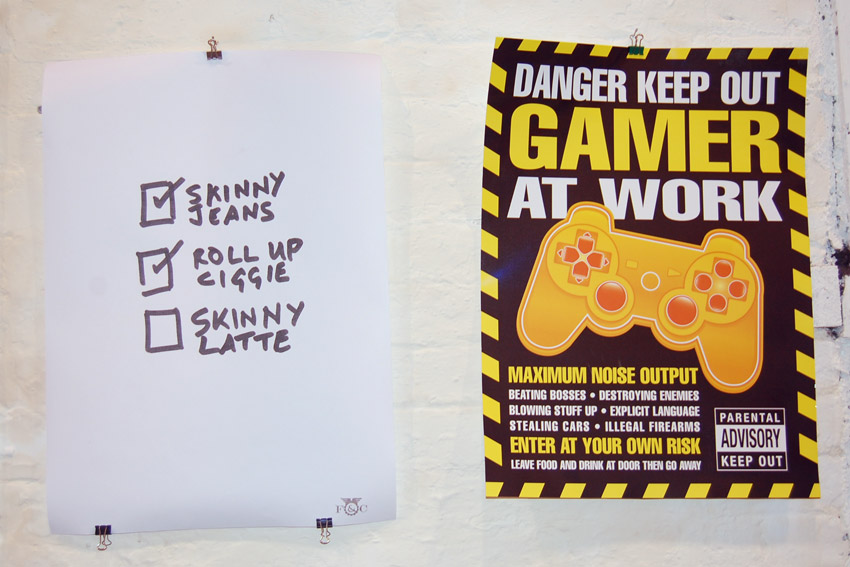 SKINNY
JEANS
ROLL UP
CIGGIE
SKINNY
LATTE
F&C
DANGER KEEP OUT
GAMER
AT WORK
MAXIMUM NOISE OUTPUT
BEATING BOSSES • DESTROYING ENEMIES
BLOWING STUFF UP • EXPLICIT LANGUAGE
STEALING CARS • ILLEGAL FIREARMS
ENTER AT YOUR OWN RISK
LEAVE FOOD AND DRINK AT DOOR THEN GO AWAY
PARENTAL
ADVISORY
KEEP OUT